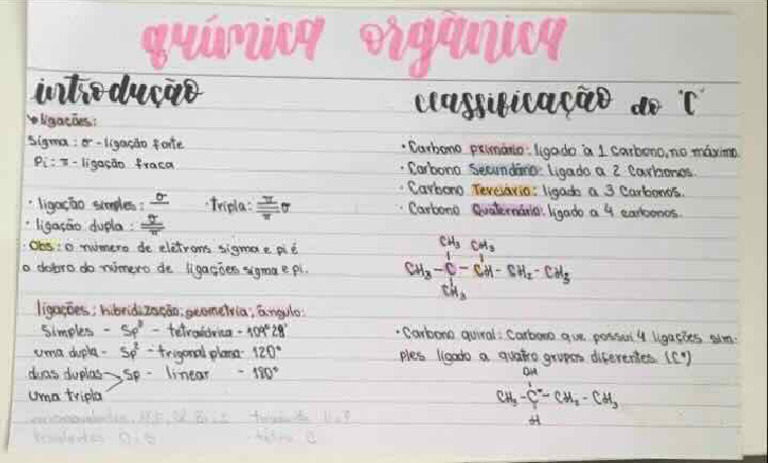 química orgânica
introdução
ligações:
Sigma: σ - ligação forte
Pi: π - ligação fraca
· ligação simples: σ · Tripla: π σ π
· ligação dupla: σ π
Obs: o número de elétrons sigma e pi é
o dobro do número de ligações sigma e pi.
ligações; hibridização; geometria; ângulo:
Simples - Sp³ - tetraédrica - 109°28'
uma dupla - Sp² - trigonal plana - 120°
duas duplas → Sp - linear - 180°
uma tripla
classificação do "C"
· Carbono primário: ligado à 1 carbono, no máximo
· Carbono Secundário: ligado a 2 Carbonos.
· Carbono Terciário: ligado a 3 Carbonos.
· Carbono Quaternário: ligado a 4 carbonos.
CH₃ CH₃
CH₃ - C - CH - CH₂ - CH₃
CH₃
· Carbono quiral: Carbono que possui 4 ligações sim-
ples ligado a quatro grupos diferentes. (C*)
OH
CH₃ - C* - CH₂ - CH₃
H